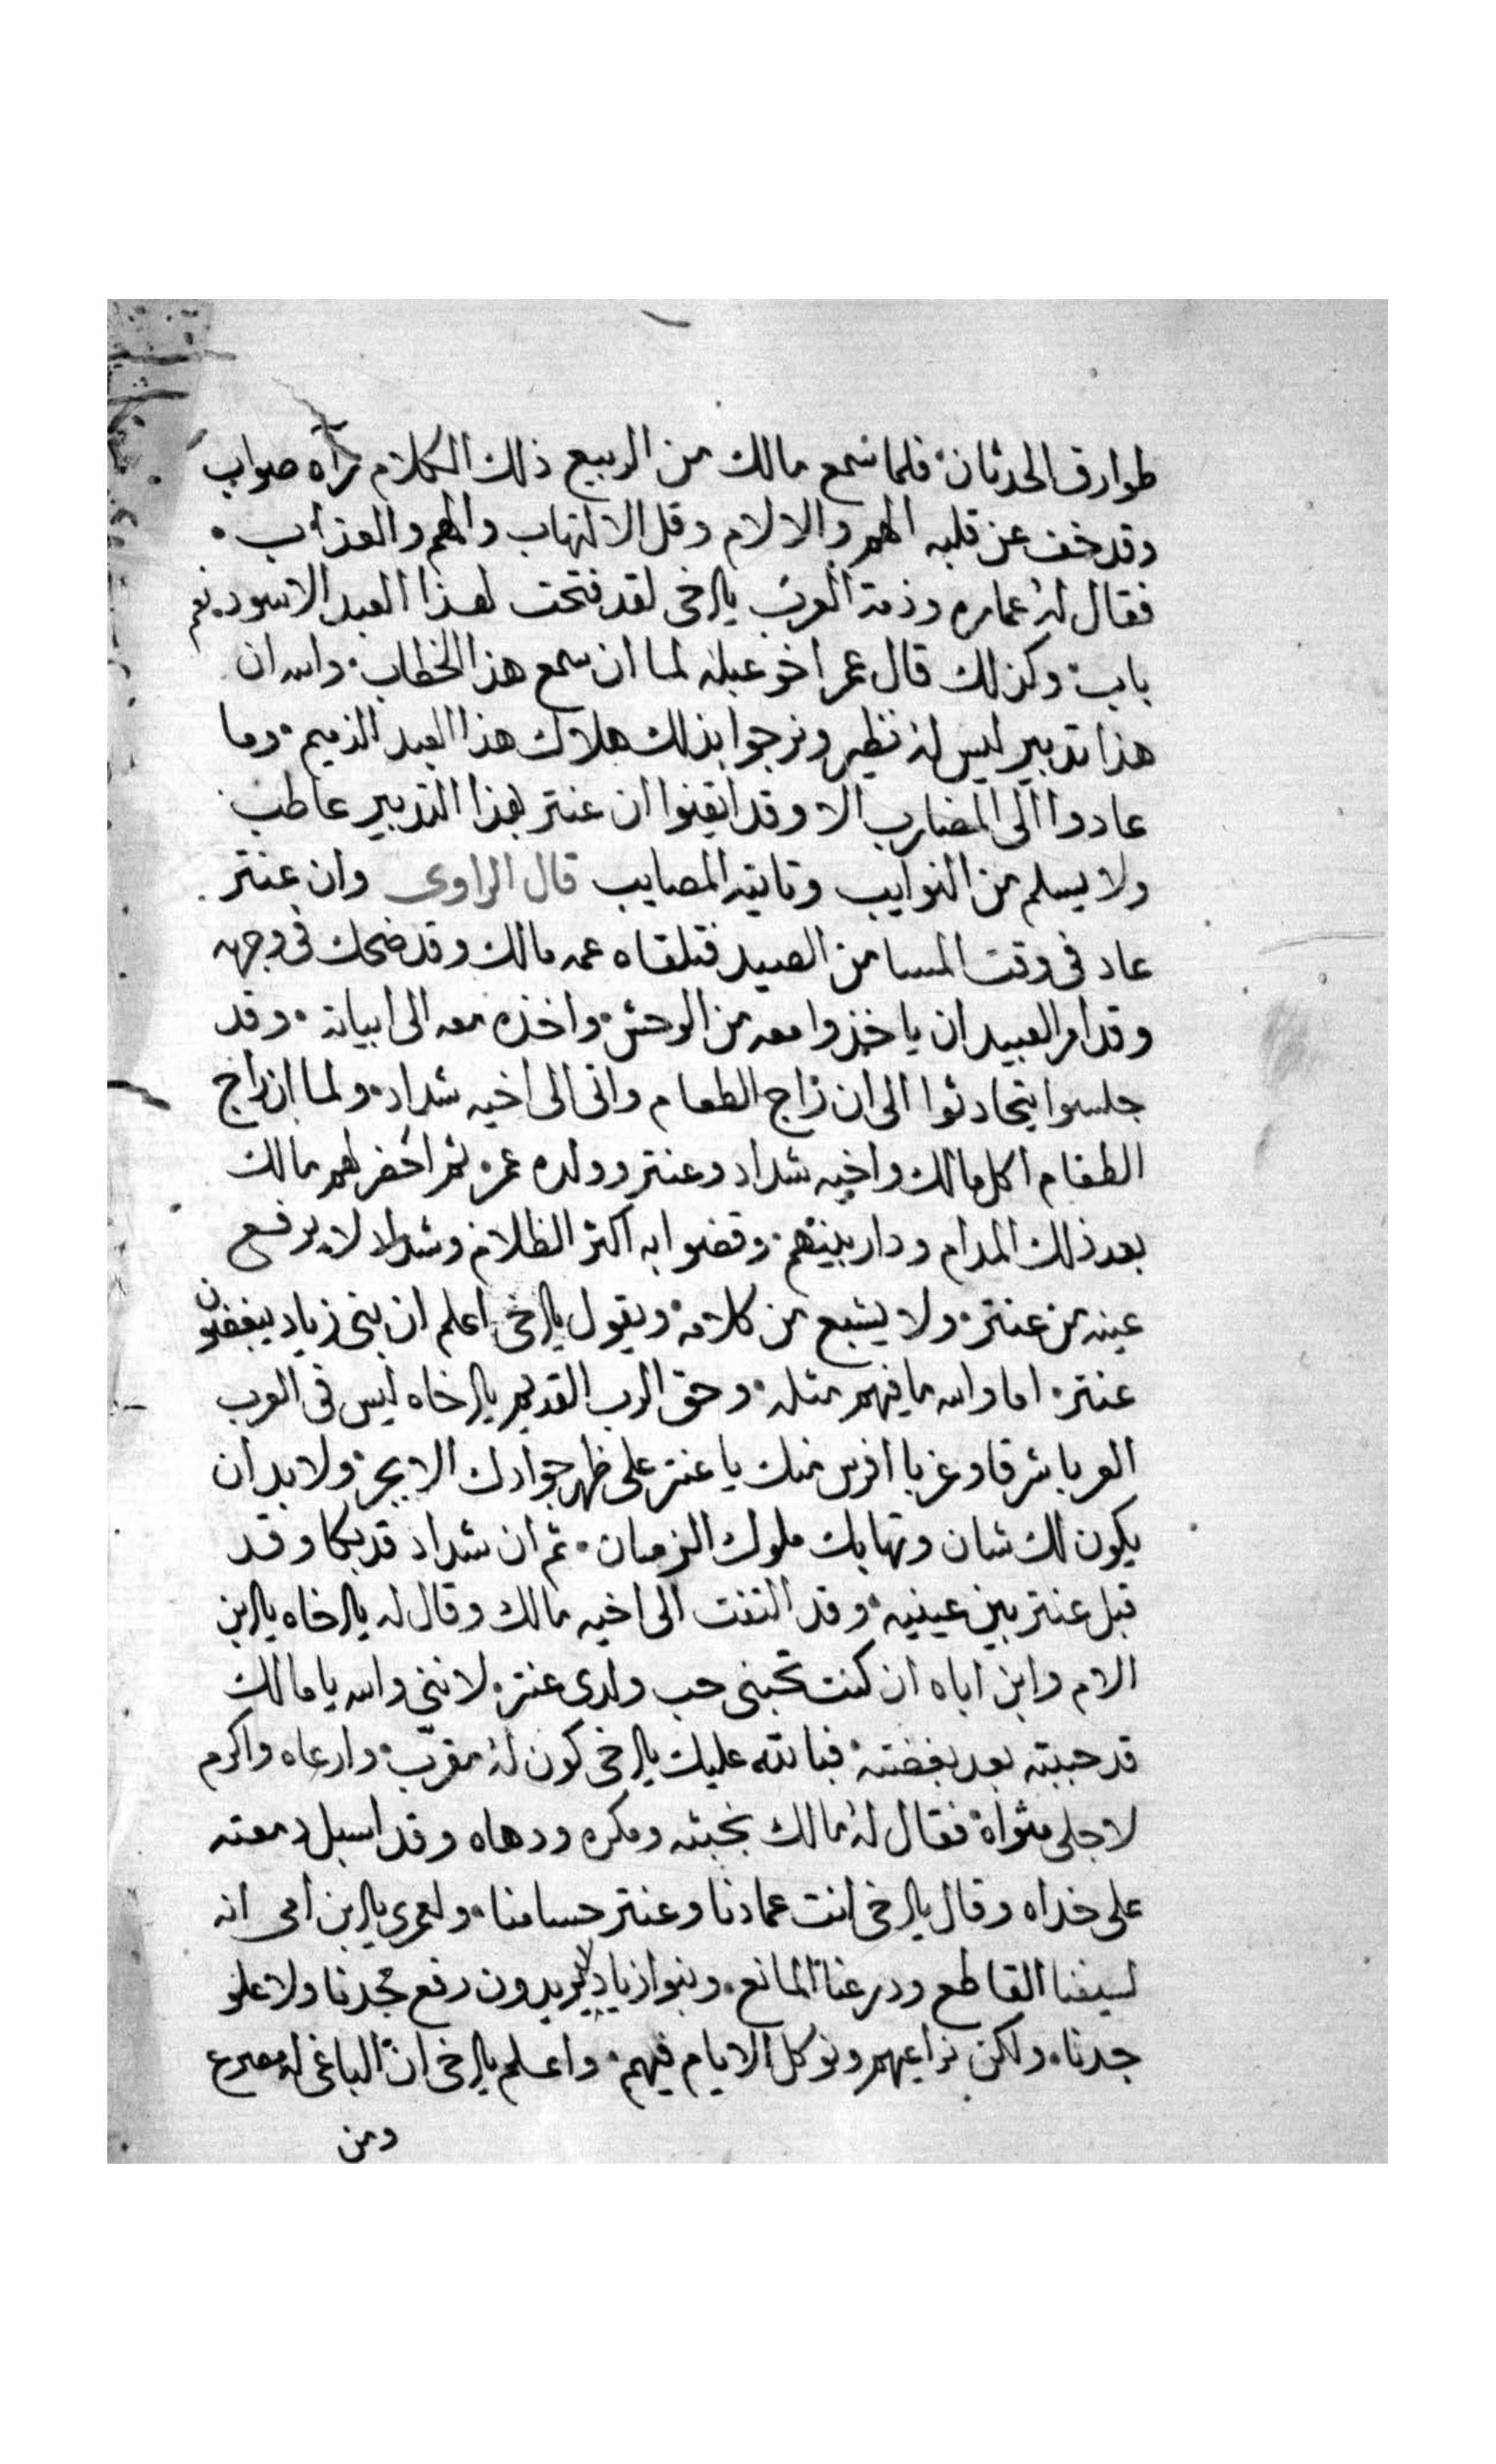 طوارق الحدثان فلما سمع مالك من الربيع ذلك الكلام رآه صواب
وقد خف عن قلبه الهم والالام وقل الالتهاب والهم والعذاب
فقال له عماره وذمة العرب يا اخى لقد فتحت لهذا العبد الاسود نعم
باب وكذلك قال عمر اخو عبله لما ان سمع هذا الخطاب والله ان
هذا تدبير ليس له نظير ونرجوا بذلك هلاك هذا العبد الذميم وما
عادوا الى المضارب الا وقد ايقنوا ان عنتر بهذا التدبير عاطب
ولا يسلم من النوايب وتاتيه المصايب قال الراوى وان عنتر
عاد فى وقت المسا من الصيد فتلقاه عمه مالك وقد ضحك فى وجهه
وقد امر العبيد ان ياخذوا معه من الوحش واخذه معه الى ابياته وقد
جلسوا يتحادثوا الى ان راج الطعام واتى الى اخيه شداد ولما ان راج
الطعام اكل مالك واخيه شداد وعنتر وولده عمر ثم احضر لهم مالك
بعد ذلك المدام ودار بينهم وقضوا به اكثر الظلام وشداد لا يرفع
عينه من عنتر ولا يشبع من كلامه ويقول يا اخى اعلم ان بنى زياد يبغضون
عنتر اما والله ما فيهم مثله وحق الرب القديم يا اخاه ليس فى العرب
العربا شرقا وغربا افرس منك يا عنتر على ظهر جوادك الابجر ولا بد ان
يكون لك شان وتهابك ملوك الزمان ثم ان شداد قد بكا وقد
قبل عنتر بين عينيه وقد التفت الى اخيه مالك وقال له يا اخاه يا ابن
الام وابن اباه ان كنت تحبنى حب ولدى عنتر لاننى والله يا مالك
قد حببته بعد بغضته فبالله عليك يا اخى كون له مقرب وارعاه واكرم
لاجلى مثواه فقال له مالك بخبثه ومكره ودهاه وقد اسبل دمعته
على خداه وقال يا اخى انت عمادنا وعنتر حسامنا ولعمرى يا ابن امى انه
لسيفنا القاطع ودرعنا المانع وبنوا زياد لا يريدون رفع مجدنا ولا علو
جدنا ولكن نراعيهم ونوكل الايام فيهم واعلم يا اخى ان الباغى له مصرع
ومن